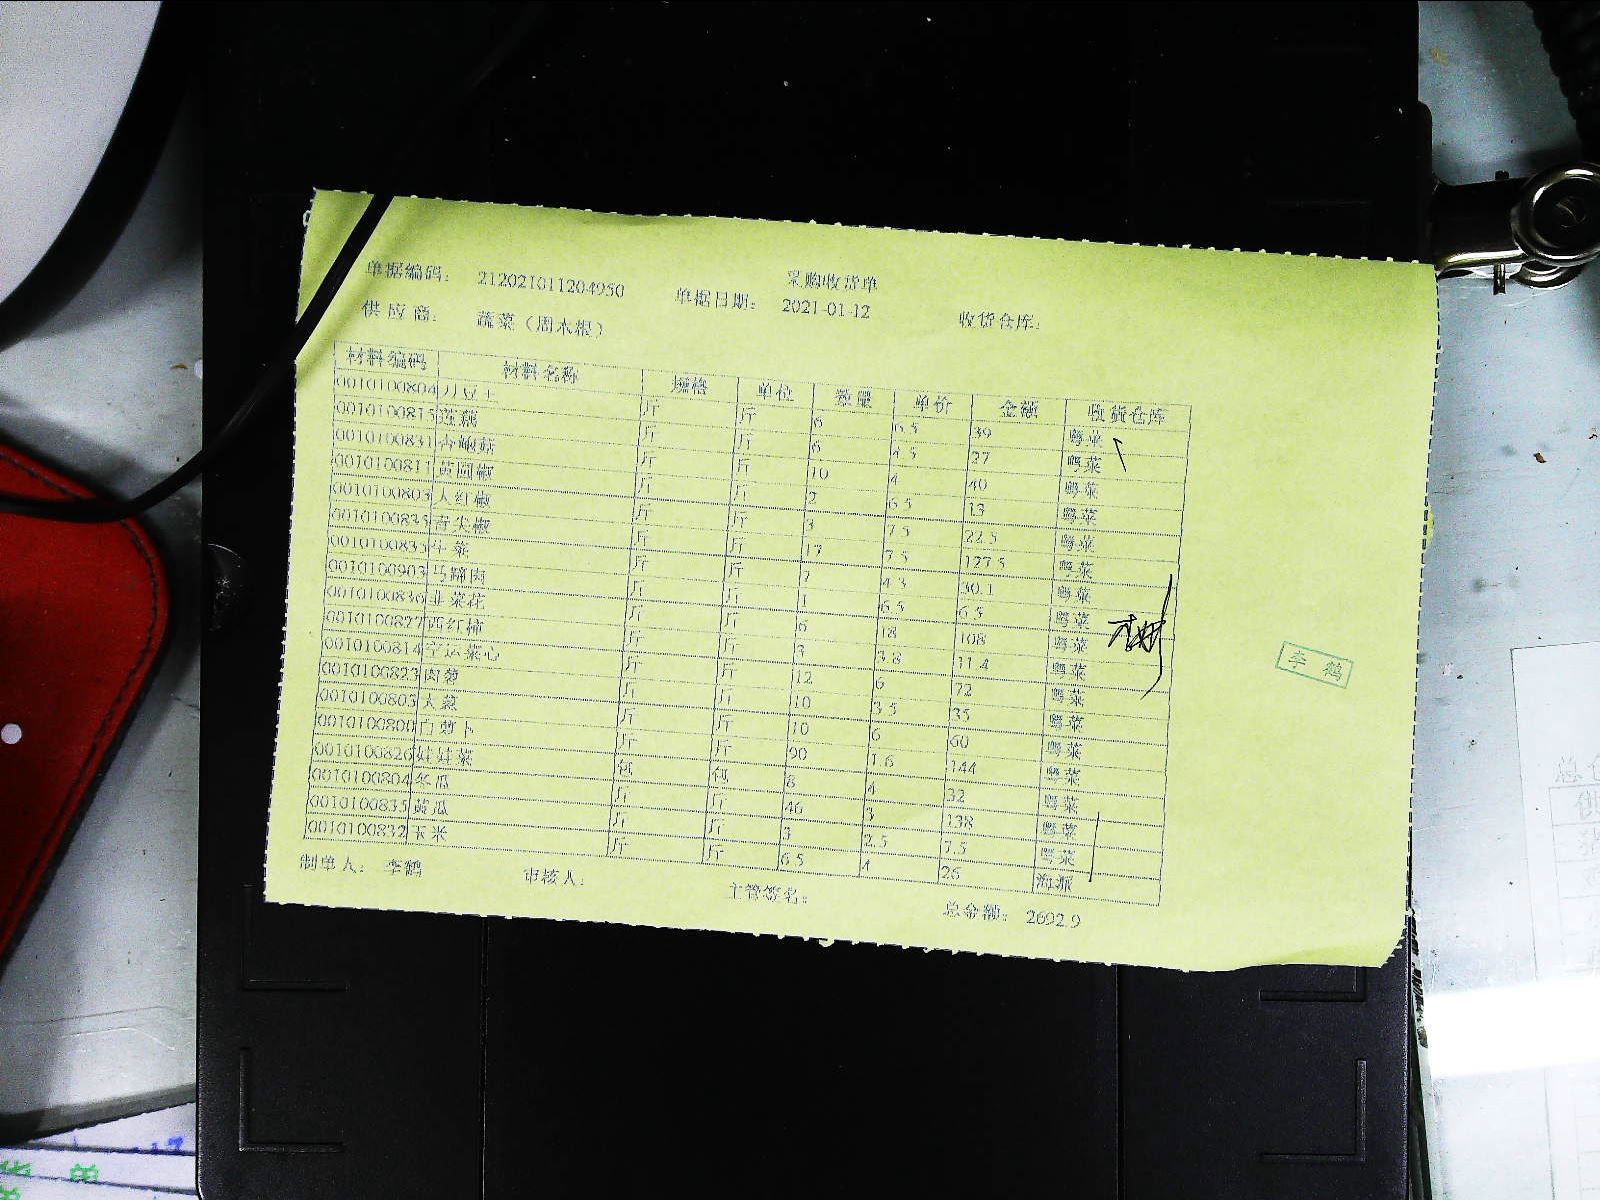 采购收货单
单据编码: 212021011204950 单据日期: 2021-01-12 收货仓库:
供应商: 蔬菜（周木根）
材料编码 材料名称 规格 单位 数量 单价 金额 收货仓库
0010100804 刀豆王 斤 斤 6 6.5 39 粤菜
0010100815 莲藕 斤 斤 6 4.5 27 粤菜
0010100831 杏鲍菇 斤 斤 10 4 40 粤菜
0010100811 黄圆椒 斤 斤 2 6.5 13 粤菜
0010100803 大红椒 斤 斤 3 7.5 22.5 粤菜
0010100835 青尖椒 斤 斤 17 7.5 127.5 粤菜
0010100835 生菜 斤 斤 7 4.3 30.1 粤菜
0010100903 马蹄肉 斤 斤 1 6.5 6.5 粤菜
0010100836 韭菜花 斤 斤 6 18 108 粤菜
0010100827 西红柿 斤 斤 3 3.8 11.4 粤菜
0010100814 空运菜心 斤 斤 12 6 72 粤菜
0010100823 斤 斤 10 3.5 35 粤菜
0010100805 大葱 斤 斤 10 6 60 粤菜
0010100800 白萝卜 斤 斤 90 1.6 144 粤菜
0010100826 娃娃菜 包 包 8 4 32 粤菜
0010100804 冬瓜 斤 斤 46 3 138 粤菜
0010100835 黄瓜 斤 斤 3 2.5 7.5 粤菜
0010100832 玉米 斤 斤 6.5 4 26 海派
制单人: 李鹤 审核人: 主管签名: 总金额: 2692.9
李鹤